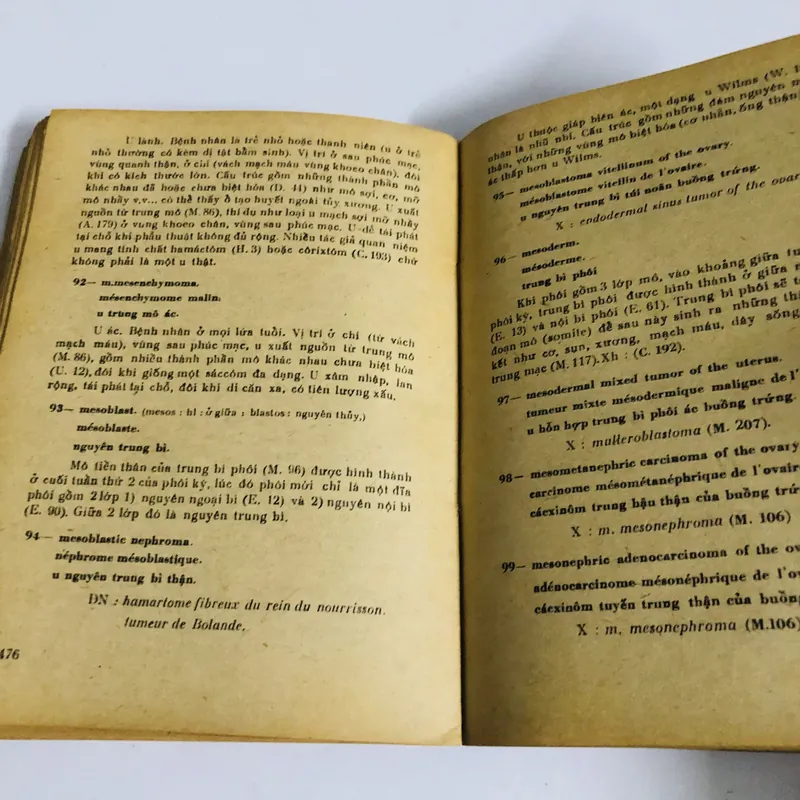 U lành. Bệnh nhân là trẻ nhỏ hoặc thanh niên (u ở trẻ
nhỏ thường có kèm dị tật bẩm sinh). Vị trí ở sau phúc mạc,
vùng quanh thận, ở chi (vách mạch máu vùng khoeo chân), đôi
khi có kích thước lớn. Cấu trúc gồm những thành phần mô
khác nhau đã hoặc chưa biệt hóa (D. 44) như mô sợi, cơ, mỡ
mô nhầy v.v... có thể thấy ổ tạo huyết ngoài tủy xương. U xuất
nguồn từ trung mô (M. 86), thí dụ như loại u mạch sợi mỡ nhầy
(A. 179) ở vùng khoeo chân, vùng sau phúc mạc. U dễ tái phát
tại chỗ khi phẫu thuật không đủ rộng. Nhiều tác giả quan niệm
u mang tính chất hamáctôm (H. 3) hoặc côrixtôm (C. 193) chứ
không phải là một u thật.
92— m.mesenchymoma.
mésenchymome malin.
u trung mô ác.
U ác. Bệnh nhân ở mọi lứa tuổi. Vị trí ở chi (từ vách
mạch máu), vùng sau phúc mạc, u xuất nguồn từ trung mô
(M. 86), gồm nhiều thành phần mô khác nhau chưa biệt hóa
(U. 12), đôi khi giống một sáccôm đa dạng. U xâm nhập, lan
rộng, tái phát tại chỗ, đôi khi di căn xa, có tiên lượng xấu.
93— mesoblast. (mesos : bl : ở giữa ; blastos : nguyên thủy,)
mésoblaste.
nguyên trung bì.
Mô tiền thân của trung bì phôi (M. 96) được hình thành
ở cuối tuần thứ 2 của phôi kỳ, lúc đó phôi mới chỉ là một đĩa
phôi gồm 2 lớp 1) nguyên ngoại bì (E. 12) và 2) nguyên nội bì
(E. 90). Giữa 2 lớp đó là nguyên trung bì.
94— mesoblastic nephroma.
néphrome mésoblastique.
u nguyên trung bì thận.
ĐN : hamartome fibreux du rein du nourrisson.
tumeur de Bolande.
476
U thuộc giáp biên ác, một dạng u Wilms (W.
nhân là nhũ nhi. Cấu trúc gồm những đám nguyên m
thận, với những vùng mô biệt hóa (cơ nhẵn, ống thận
ác thấp hơn u Wilms.
95— mesoblastoma vitellinum of the ovary.
mésoblastome vitellin de l'ovaire.
u nguyên trung bì túi noãn buồng trứng.
X : endodermal sinus tumor of the ovar
96— mesoderm.
mésoderme.
trung bì phôi
Khi phôi gồm 3 lớp mô, vào khoảng giữa tu
phôi kỳ, trung bì phôi được hình thành ở giữa n
(E. 13) và nội bì phôi (E. 61). Trung bì phôi sẽ t
đoạn mô (somite) để sau này sinh ra những th
kết như cơ, sụn, xương, mạch máu, dây sống
trung mạc (M. 117). Xh : (C. 192).
97— mesodermal mixed tumor of the uterus.
tumeur mixte mésodermique maligne de l'
u hỗn hợp trung bì phôi ác buồng trứng.
X : mulleroblastoma (M. 207).
98— mesometanephric carcinoma of the ovary
carcinome mésométanéphrique de l'ovaire
cácxinôm trung hậu thận của buồng trứ
X : m. mesonephroma (M. 106)
99— mesonephric adenocarcinoma of the ov
adénocarcinome mésonéphrique de l'ova
cácxinôm tuyến trung thận của buồng
X : m. mesonephroma (M.106)